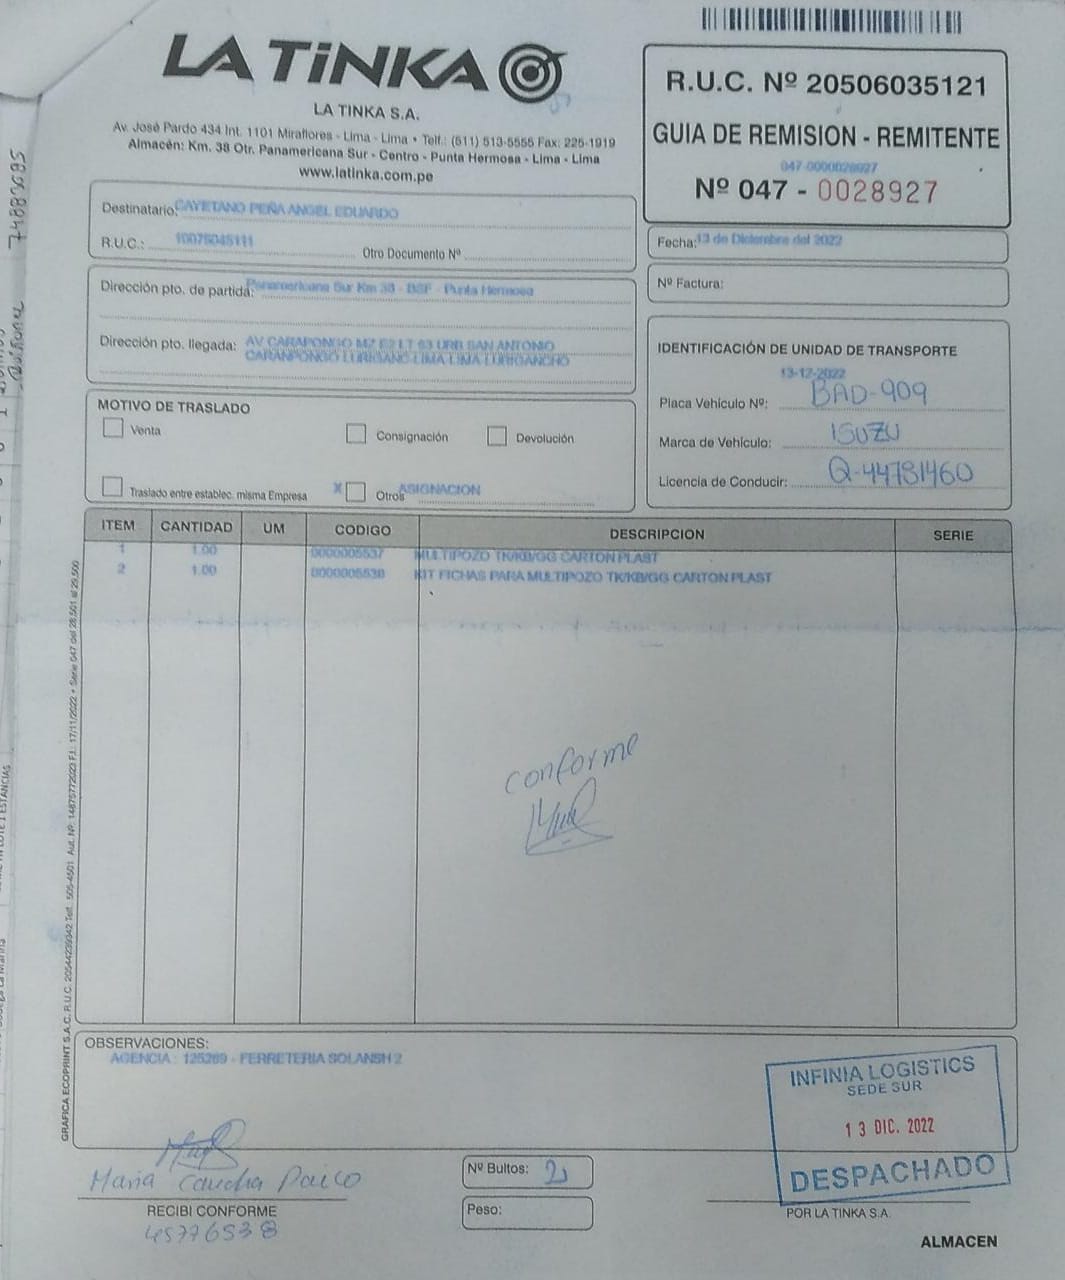 LA TiNKA
LA TINKA S.A.
Av. José Pardo 434 Int. 1101 Miraflores - Lima - Lima • Telf.: (511) 513-5555 Fax: 225-1919
Almacén: Km. 38 Otr. Panamericana Sur - Centro - Punta Hermosa - Lima - Lima
www.latinka.com.pe
R.U.C. Nº 20506035121
GUIA DE REMISION - REMITENTE
047-0000028927
Nº 047 - 0028927
Destinatario: CAYETANO PEÑA ANGEL EDUARDO
R.U.C.: 10075045111 Otro Documento Nº
Fecha: 13 de Diciembre del 2022
Nº Factura:
Dirección pto. de partida: Panamericana Sur Km 38 - BSF - Punta Hermosa
Dirección pto. llegada: AV CARAPONGO MZ E2 LT 63 URB SAN ANTONIO
CARANPONGO LURIGANC-LIMA LIMA LURIGANCHO
IDENTIFICACIÓN DE UNIDAD DE TRANSPORTE
13-12-2022
Placa Vehículo Nº: BAD-909
Marca de Vehículo: ISUZU
Licencia de Conducir: Q-44781460
MOTIVO DE TRASLADO
Venta Consignación Devolución
Traslado entre establec. misma Empresa X Otros ASIGNACION
ITEM CANTIDAD UM CODIGO DESCRIPCION SERIE
1 1.00 0000005537 MULTIPOZO TK/KB/GG CARTON PLAST
2 1.00 0000005538 KIT FICHAS PARA MULTIPOZO TK/KB/GG CARTON PLAST
conforme
OBSERVACIONES:
AGENCIA : 125269 - FERRETERIA SOLANSH 2
INFINIA LOGISTICS
SEDE SUR
13 DIC. 2022
DESPACHADO
Maria Concha Paico
RECIBI CONFORME
45776538
Nº Bultos: 2
Peso:
POR LA TINKA S.A.
ALMACEN
GRAFICA ECOPRINT S.A.C. R.U.C. 20544239342 Telf.: 505-4501 Aut. Nº: 14875772023 F.I.: 17/11/2022 • Serie 047 del 28,501 al 29,500
74883685